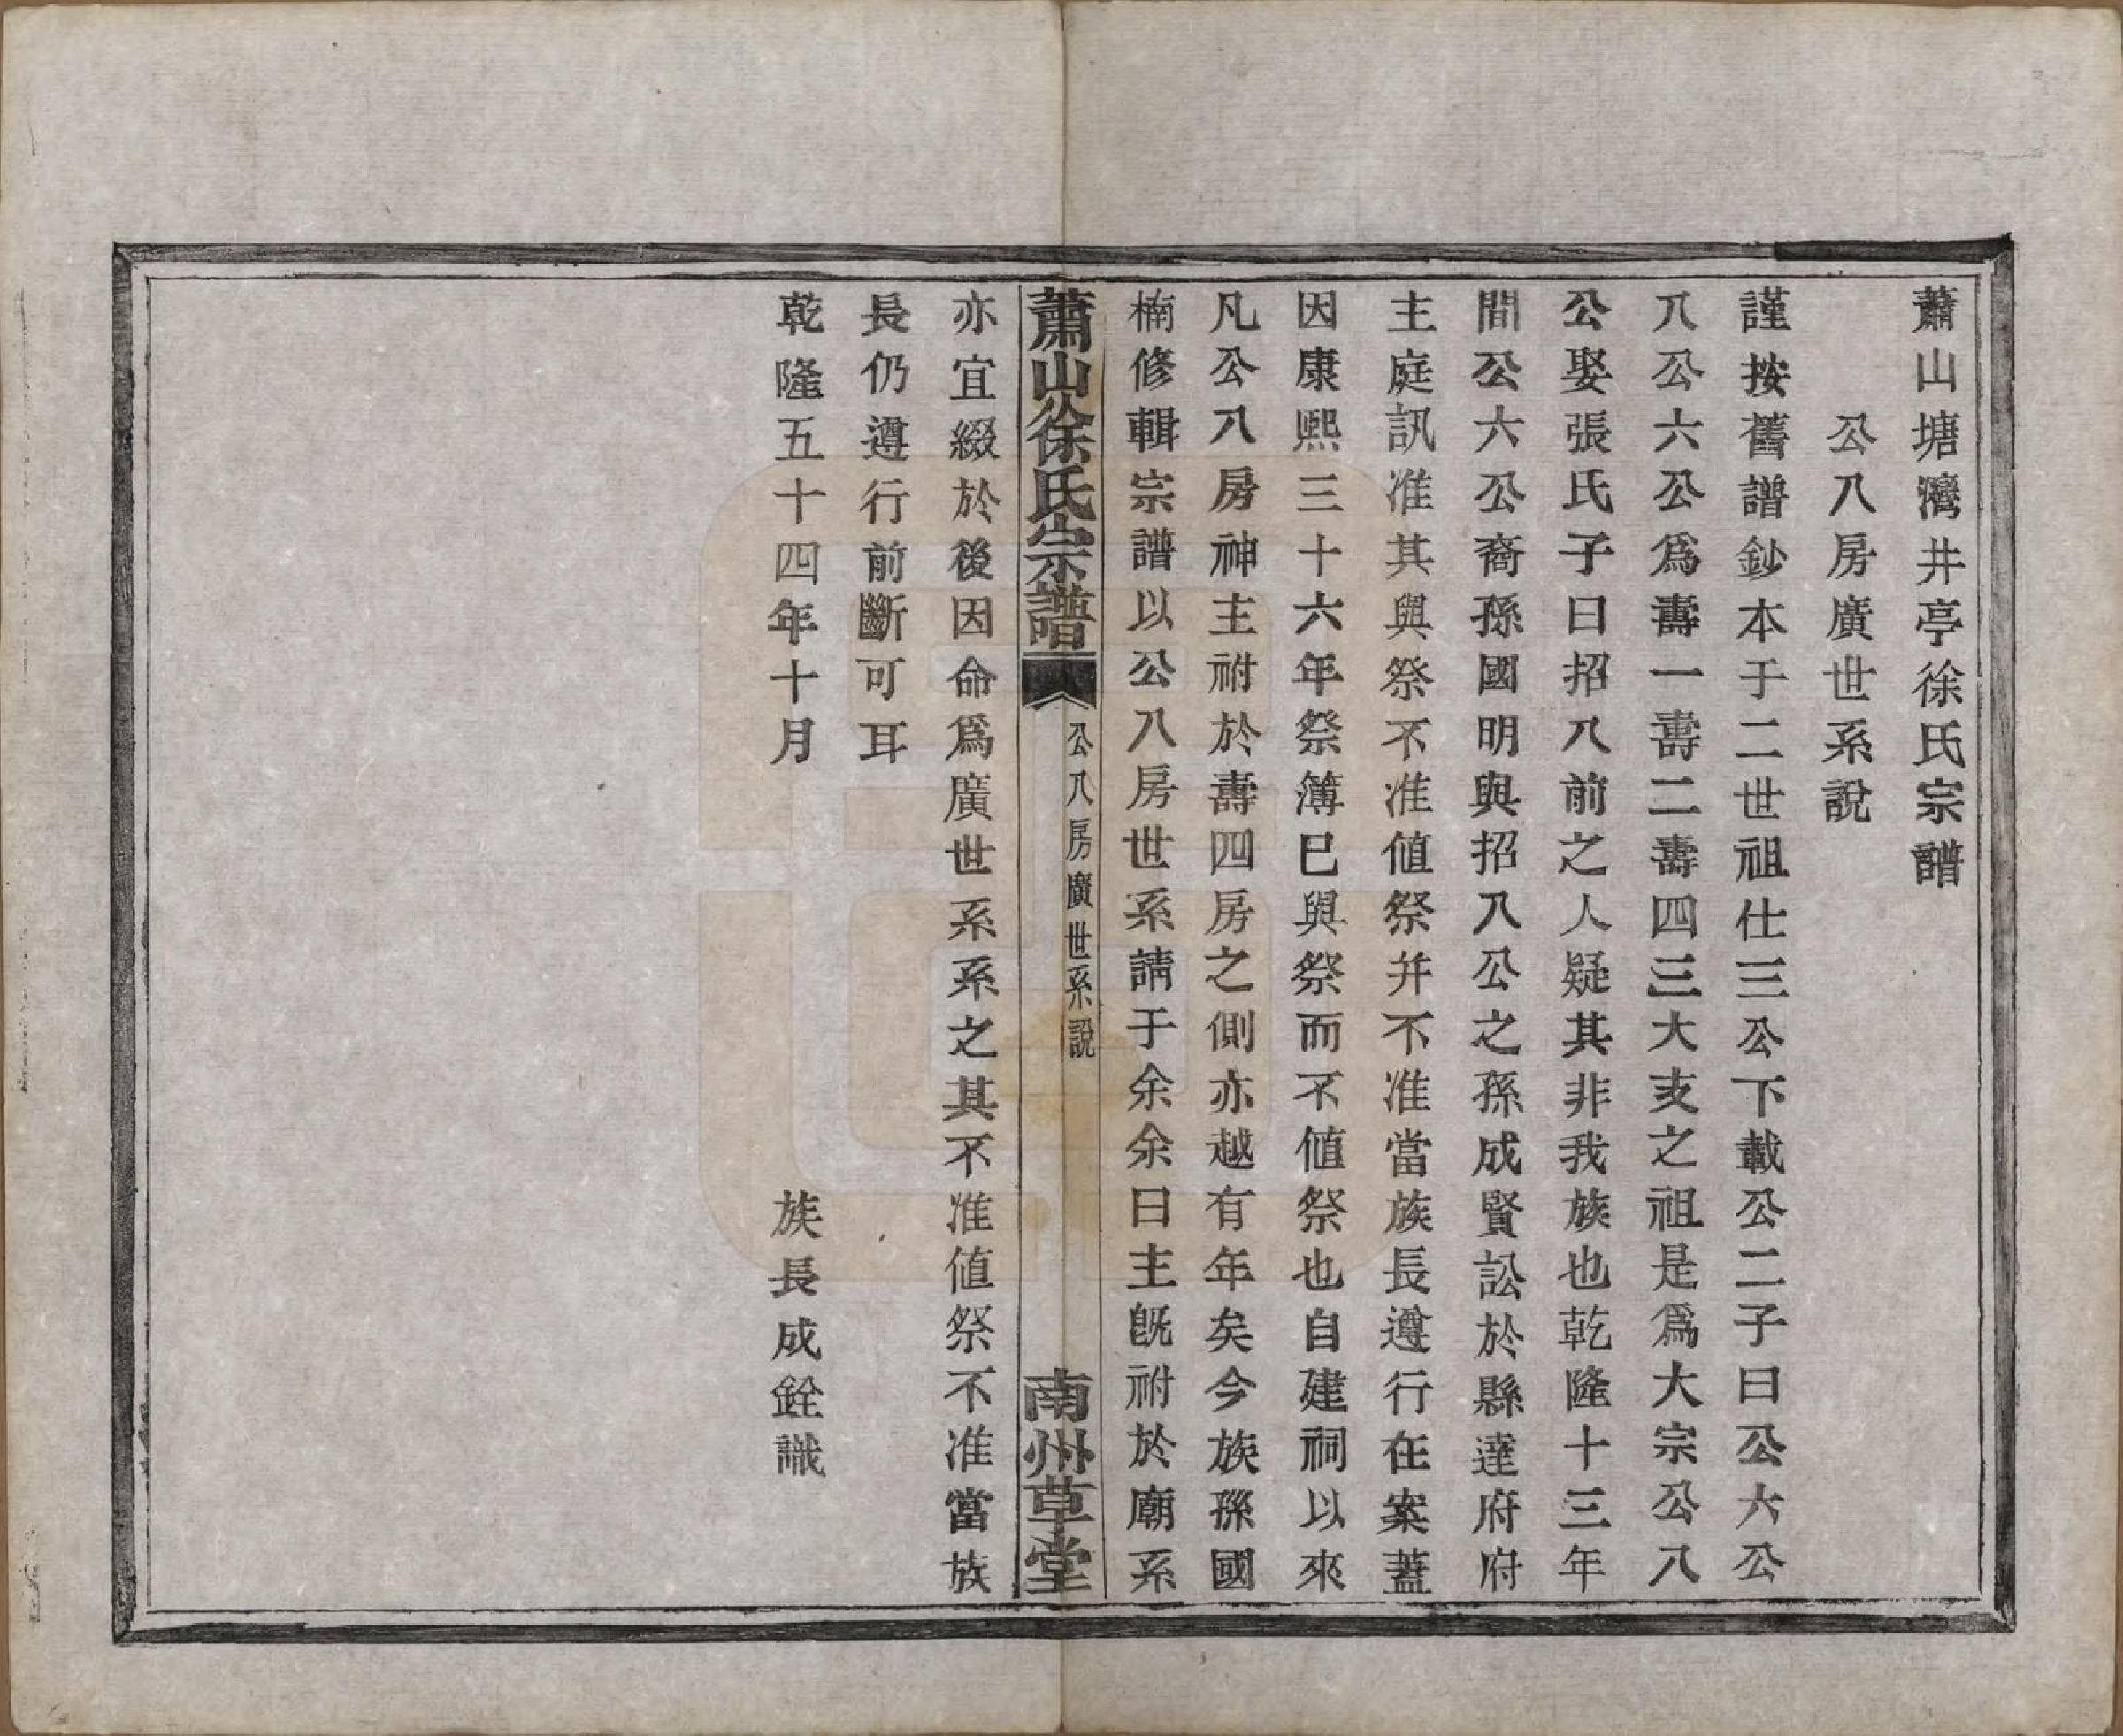 蕭山塘灣井亭徐氏宗譜
公八房廣世系說
謹按舊譜鈔本于二世祖仕三公下載公二子曰公六公
八公六公爲壽一壽二壽四三大支之祖是爲大宗公八
公娶張氏子曰招八前之人疑其非我族也乾隆十三年
間公六公裔孫國明與招八公之孫成賢訟於縣達府府
主庭訊准其與祭不准値祭并不准當族長遵行在案蓋
因康熙三十六年祭簿巳與祭而不値祭也自建祠以來
凡公八房神主祔於壽四房之側亦越有年矣今族孫國
楠修輯宗譜以公八房世系請于余余曰主旣祔於廟系
蕭山徐氏宗譜 公八房廣世系說 南州草堂
亦宜綴於後因命爲廣世系系之其不准値祭不准當族
長仍遵行前斷可耳
乾隆五十四年十月 族長成銓識